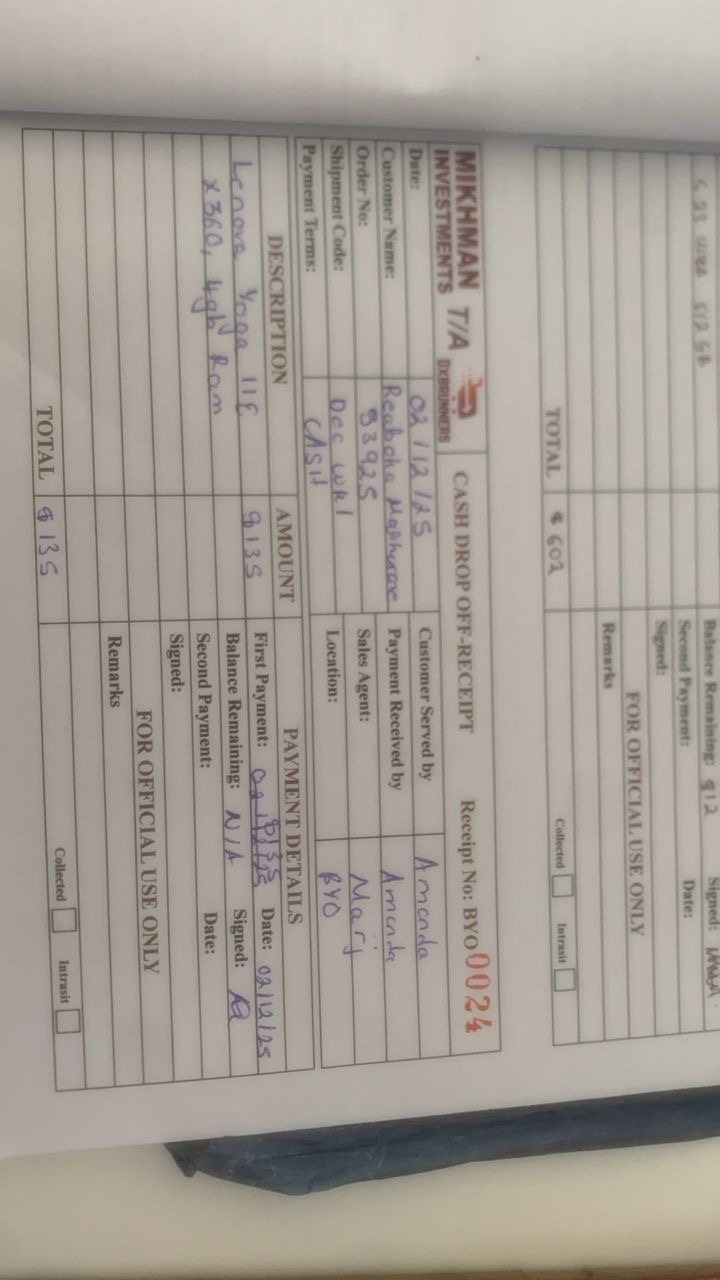 S 23 512 GB
Balance Remaining: $12 Signed:
Second Payment: Date:
Signed:
FOR OFFICIAL USE ONLY
Remarks
TOTAL $ 602
Collected Intrasit
MIKHMAN T/A
INVESTMENTS DXBRUNNERS
CASH DROP OFF-RECEIPT Receipt No: BYO 0024
Date: 02/12/25 Customer Served by Amanda
Customer Name: Reaboka Payment Received by Amanda
Order No: 93925 Sales Agent: Marj
Shipment Code: Dec WK1 Location: BYO
Payment Terms: CASH
DESCRIPTION AMOUNT PAYMENT DETAILS
Lenovo Yoga 11E $135 First Payment: $135 02/12/25 Date: 02/12/25
x360, 4gb Ram Balance Remaining: N/A Signed:
Second Payment: Date:
Signed:
FOR OFFICIAL USE ONLY
Remarks
TOTAL $135
Collected Intrasit